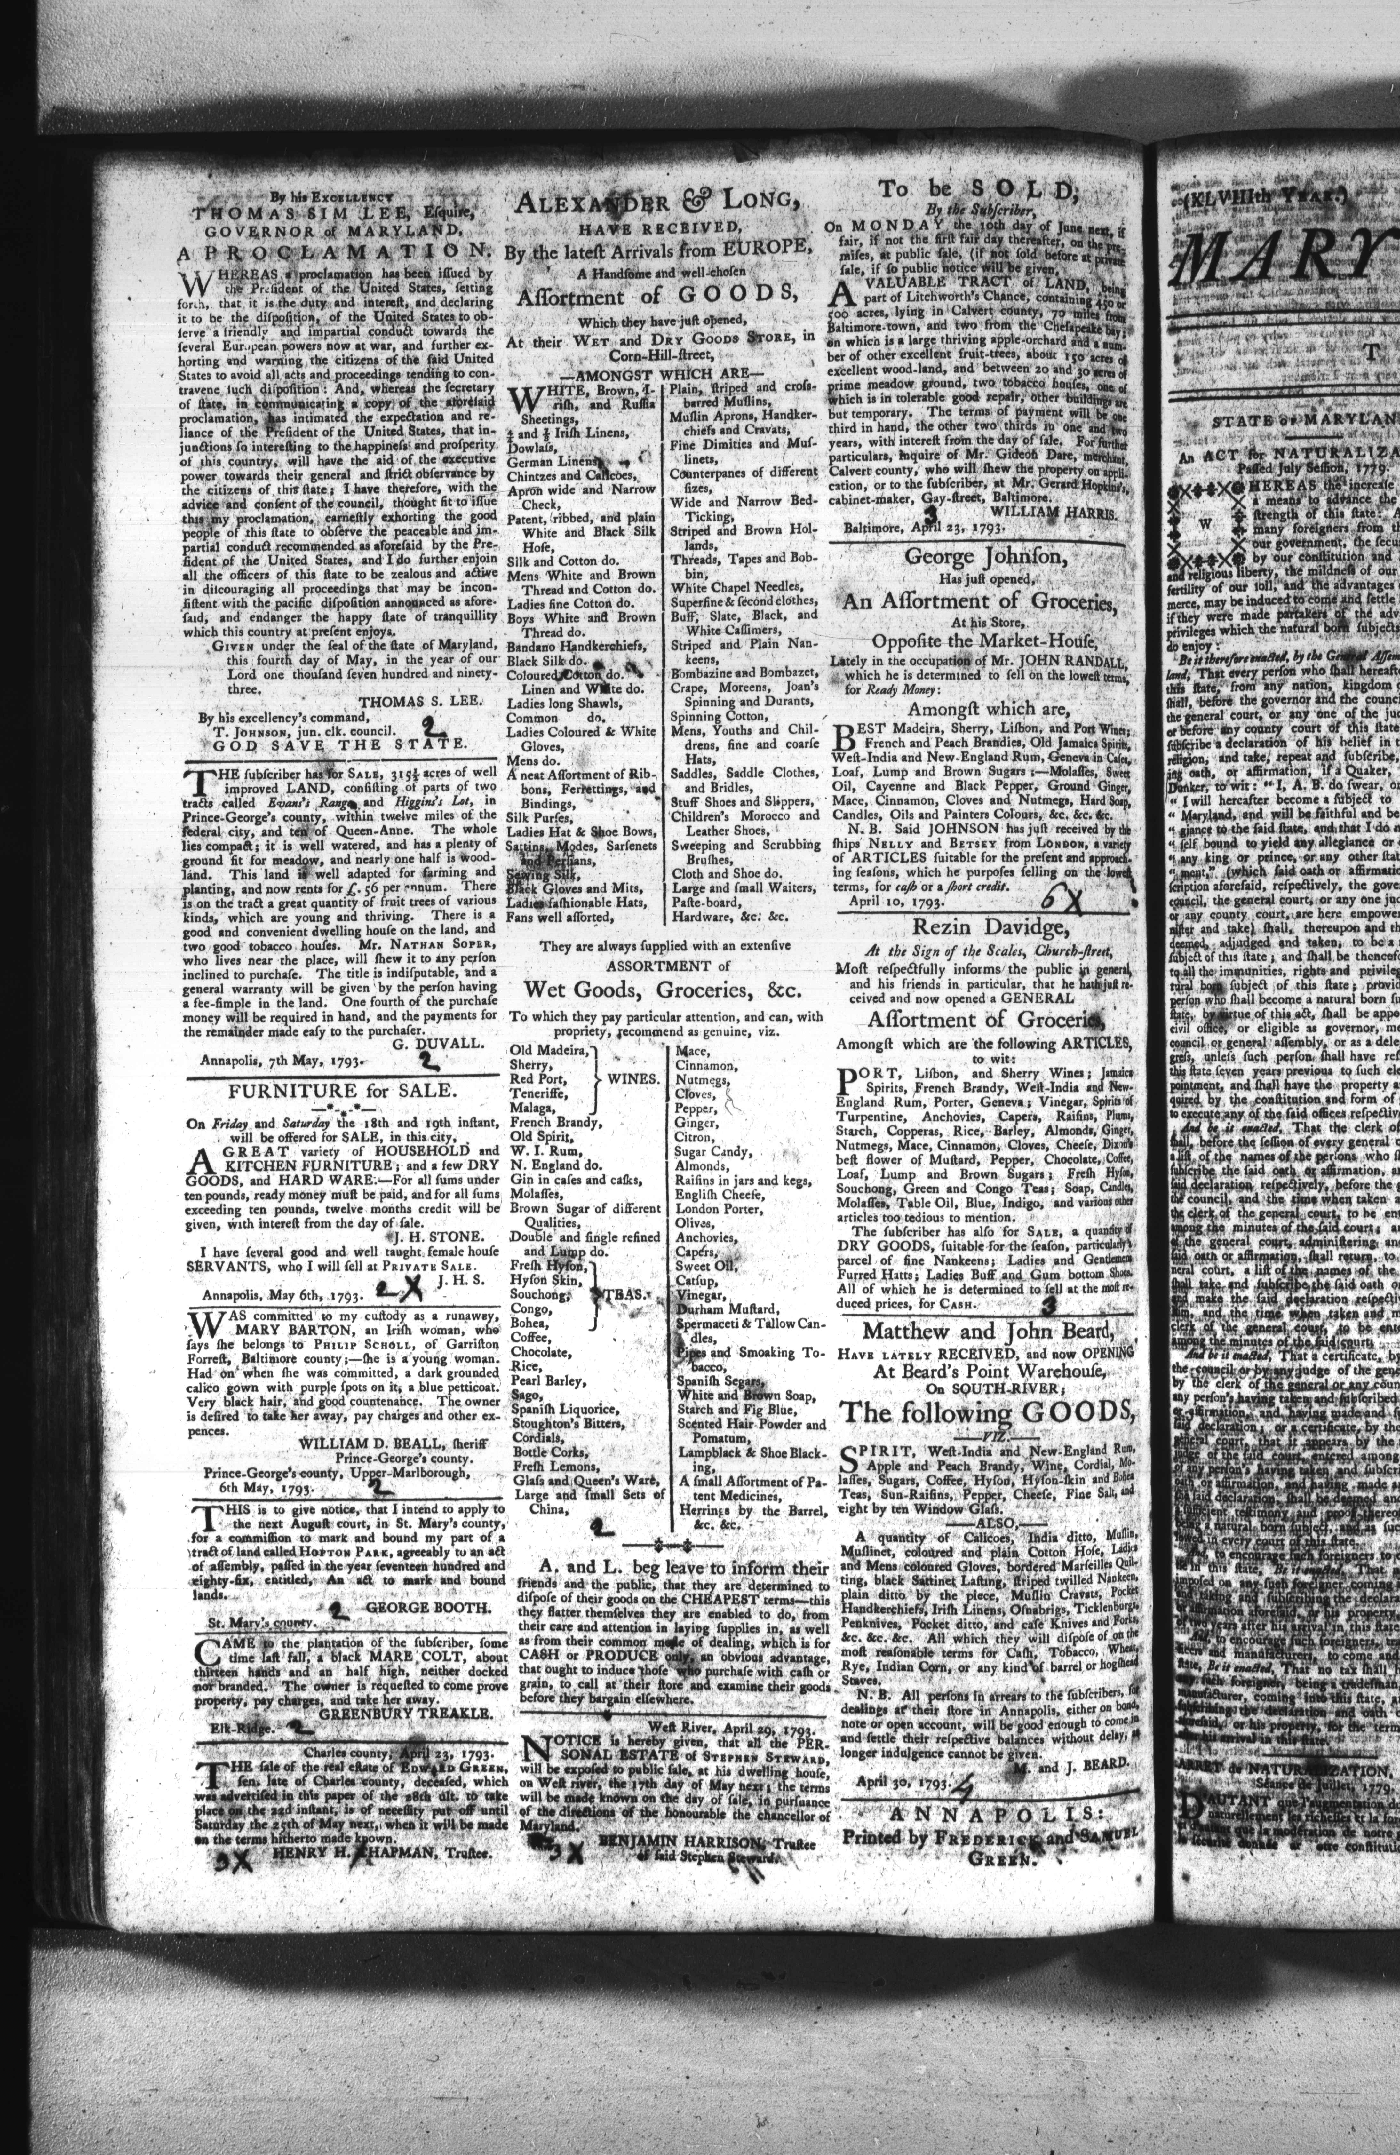 By his EXCELLENCY
THOMAS SIM LEE, Eſquire,
GOVERNOR of MARYLAND,
A PROCLAMATION.
WHEREAS a proclamation has been iſſued by
the Preſident of the United States, ſetting
forth, that it is the duty and intereſt, and declaring
it to be the diſpoſition, of the United States to ob-
ſerve a friendly and impartial conduct towards the
ſeveral European powers now at war, and further ex-
horting and warning the citizens of the ſaid United
States to avoid all acts and proceedings tending to con-
travene ſuch diſpoſition: And, whereas the ſecretary
of ſtate, in communicating a copy of the aforeſaid
proclamation, has intimated the expectation and re-
liance of the Preſident of the United States, that in-
junctions ſo intereſting to the happineſs and proſperity
of this country, will have the aid of the executive
power towards their general and ſtrict obſervance by
the citizens of this ſtate; I have therefore, with the
advice and conſent of the council, thought fit to iſſue
this my proclamation, earneſtly exhorting the good
people of this ſtate to obſerve the peaceable and im-
partial conduct recommended as aforeſaid by the Pre-
ſident of the United States, and I do further enjoin
all the officers of this ſtate to be zealous and active
in diſcouraging all proceedings that may be incon-
ſiſtent with the pacific diſpoſition announced as afore-
ſaid, and endanger the happy ſtate of tranquillity
which this country at preſent enjoys.
GIVEN under the ſeal of the ſtate of Maryland,
this fourth day of May, in the year of our
Lord one thouſand ſeven hundred and ninety-
three.
THOMAS S. LEE.
By his excellency's command,
T. JOHNSON, jun. clk. council. 2
GOD SAVE THE STATE.
THE ſubſcriber has for SALE, 315½ acres of well
improved LAND, conſiſting of parts of two
tracts called Evans's Range and Higgins's Lot, in
Prince-George's county, within twelve miles of the
federal city, and ten of Queen-Anne. The whole
lies compact; it is well watered, and has a plenty of
ground fit for meadow, and nearly one half is wood-
land. This land is well adapted for farming and
planting, and now rents for £. 56 per annum. There
is on the tract a great quantity of fruit trees of various
kinds, which are young and thriving. There is a
good and convenient dwelling houſe on the land, and
two good tobacco houſes. Mr. NATHAN SOPER,
who lives near the place, will ſhew it to any perſon
inclined to purchaſe. The title is indiſputable, and a
general warranty will be given by the perſon having
a fee-ſimple in the land. One fourth of the purchaſe
money will be required in hand, and the payments for
the remainder made eaſy to the purchaſer.
G. DUVALL.
Annapolis, 7th May, 1793. 2
FURNITURE for SALE.
On Friday and Saturday the 18th and 19th inſtant,
will be offered for SALE, in this city,
A GREAT variety of HOUSEHOLD and
KITCHEN FURNITURE; and a few DRY
GOODS, and HARD WARE.—For all ſums under
ten pounds, ready money muſt be paid, and for all ſums
exceeding ten pounds, twelve months credit will be
given, with intereſt from the day of ſale.
J. H. STONE.
I have ſeveral good and well taught female houſe
SERVANTS, who I will ſell at PRIVATE SALE.
J. H. S.
Annapolis, May 6th, 1793. 2 X
WAS committed to my cuſtody as a runaway,
MARY BARTON, an Iriſh woman, who
ſays ſhe belongs to PHILIP SCHOLL, of Garriſton
Forreſt, Baltimore county;—ſhe is a young woman.
Had on when ſhe was committed, a dark grounded
calico gown with purple ſpots on it, a blue petticoat.
Very black hair, and good countenance. The owner
is deſired to take her away, pay charges and other ex-
pences.
WILLIAM D. BEALL, ſheriff
Prince-George's county.
Prince-George's county, Upper-Marlborough,
6th May, 1793. 2
THIS is to give notice, that I intend to apply to
the next Auguſt court, in St. Mary's county,
for a commiſſion to mark and bound my part of a
tract of land called HOPTON PARK, agreeably to an act
of aſſembly, paſſed in the year ſeventeen hundred and
eighty-ſix, entitled, An act to mark and bound
lands.
GEORGE BOOTH.
St. Mary's county. 2
CAME to the plantation of the ſubſcriber, ſome
time laſt fall, a black MARE COLT, about
thirteen hands and an half high, neither docked
nor branded. The owner is requeſted to come prove
property, pay charges, and take her away.
GREENBURY TREAKLE.
Elk-Ridge. 2
Charles county, April 23, 1793.
THE ſale of the real eſtate of EDWARD GREEN,
ſen. late of Charles county, deceaſed, which
was advertiſed in this paper of the 28th ult. to take
place on the 22d inſtant, is of neceſſity put off until
Saturday the 25th of May next, when it will be made
on the terms hitherto made known.
HENRY H. CHAPMAN, Truſtee.
3 X
ALEXANDER & LONG,
HAVE RECEIVED,
By the lateſt Arrivals from EUROPE,
A Handſome and well-choſen
Aſſortment of GOODS,
Which they have juſt opened,
At their WET and DRY GOODS STORE, in
Corn-Hill-ſtreet,
—AMONGST WHICH ARE—
WHITE, Brown, I-
riſh, and Ruſſia
Sheetings,
and Iriſh Linens,
Dowlaſs,
German Linens,
Chintzes and Callicoes,
Apron wide and Narrow
Check,
Patent, ribbed, and plain
White and Black Silk
Hoſe,
Silk and Cotton do.
Mens White and Brown
Thread and Cotton do.
Ladies fine Cotton do.
Boys White and Brown
Thread do.
Bandano Handkerchiefs,
Black Silk do.
Coloured Cotton do.
Linen and White do.
Ladies long Shawls,
Common do.
Ladies Coloured & White
Gloves,
Mens do.
A neat Aſſortment of Rib-
bons, Ferrettings, and
Bindings,
Silk Purſes,
Ladies Hat & Shoe Bows,
Sattins, Modes, Sarſenets
and Perſians,
Sewing Silk,
Black Gloves and Mits,
Ladies faſhionable Hats,
Fans well aſſorted,
Plain, ſtriped and croſs-
barred Muſlins,
Muſlin Aprons, Handker-
chiefs and Cravats,
Fine Dimities and Muſ-
linets,
Counterpanes of different
ſizes,
Wide and Narrow Bed-
Ticking,
Striped and Brown Hol-
lands,
Threads, Tapes and Bob-
bin,
White Chapel Needles,
Superfine & ſecond clothes,
Buff, Slate, Black, and
White Caſſimers,
Striped and Plain Nan-
keens,
Bombazine and Bombazet,
Crape, Moreens, Joan's
Spinning and Durants,
Spinning Cotton,
Mens, Youths and Chil-
drens, fine and coarſe
Hats,
Saddles, Saddle Clothes,
and Bridles,
Stuff Shoes and Slippers,
Children's Morocco and
Leather Shoes,
Sweeping and Scrubbing
Bruſhes,
Cloth and Shoe do.
Large and ſmall Waiters,
Paſte-board,
Hardware, &c. &c.
They are always ſupplied with an extenſive
ASSORTMENT of
Wet Goods, Groceries, &c.
To which they pay particular attention, and can, with
propriety, recommend as genuine, viz.
Old Madeira,
Sherry,
Red Port, WINES.
Teneriffe,
Malaga,
French Brandy,
Old Spirit,
W. I. Rum,
N. England do.
Gin in caſes and caſks,
Molaſſes,
Brown Sugar of different
Qualities,
Double and ſingle refined
and Lump do.
Freſh Hyſon,
Hyſon Skin,
Souchong, TEAS.
Congo,
Bohea,
Coffee,
Chocolate,
Rice,
Pearl Barley,
Sago,
Spaniſh Liquorice,
Stoughton's Bitters,
Cordials,
Bottle Corks,
Freſh Lemons,
Glaſs and Queen's Ware,
Large and ſmall Sets of
China,
2
Mace,
Cinnamon,
Nutmegs,
Cloves,
Pepper,
Ginger,
Citron,
Sugar Candy,
Almonds,
Raiſins in jars and kegs,
Engliſh Cheeſe,
London Porter,
Olives,
Anchovies,
Capers,
Sweet Oil,
Catſup,
Vinegar,
Durham Muſtard,
Spermaceti & Tallow Can-
dles,
Pipes and Smoaking To-
bacco,
Spaniſh Segars,
White and Brown Soap,
Starch and Fig Blue,
Scented Hair Powder and
Pomatum,
Lampblack & Shoe Black-
ing,
A ſmall Aſſortment of Pa-
tent Medicines,
Herrings by the Barrel,
&c. &c.
A. and L. beg leave to inform their
friends and the public, that they are determined to
diſpoſe of their goods on the CHEAPEST terms—this
they flatter themſelves they are enabled to do, from
their care and attention in laying ſupplies in, as well
as from their common mode of dealing, which is for
CASH or PRODUCE only, an obvious advantage,
that ought to induce thoſe who purchaſe with caſh or
grain, to call at their ſtore and examine their goods
before they bargain elſewhere.
Weſt River, April 29, 1793.
NOTICE is hereby given, that all the PER-
SONAL ESTATE of STEPHEN STEWARD,
will be expoſed to public ſale, at his dwelling houſe,
on Weſt river, the 17th day of May next; the terms
will be made known on the day of ſale, in purſuance
of the directions of the honourable the chancellor of
Maryland.
BENJAMIN HARRISON, Truſtee
of ſaid Stephen Steward.
3 X
To be SOLD,
By the Subſcriber,
On MONDAY the 10th day of June next, if
fair, if not the firſt fair day thereafter, on the pre-
miſes, at public ſale, (if not ſold before at private
ſale, if ſo public notice will be given,
A VALUABLE TRACT of LAND, being
part of Litchworth's Chance, containing 450 or
500 acres, lying in Calvert county, 70 miles from
Baltimore-town, and two from the Cheſapeake bay;
on which is a large thriving apple-orchard and a num-
ber of other excellent fruit-trees, about 150 acres of
excellent wood-land, and between 20 and 30 acres of
prime meadow ground, two tobacco houſes, one of
which is in tolerable good repair, other buildings are
but temporary. The terms of payment will be one
third in hand, the other two thirds in one and two
years, with intereſt from the day of ſale. For further
particulars, inquire of Mr. Gideon Dare, merchant,
Calvert county, who will ſhew the property on appli-
cation, or to the ſubſcriber, at Mr. Gerard Hopkins's,
cabinet-maker, Gay-ſtreet, Baltimore.
3 WILLIAM HARRIS.
Baltimore, April 23, 1793.
George Johnſon,
Has juſt opened,
An Aſſortment of Groceries,
At his Store,
Oppoſite the Market-Houſe,
Lately in the occupation of Mr. JOHN RANDALL,
which he is determined to ſell on the loweſt terms,
for Ready Money:
Amongſt which are,
BEST Madeira, Sherry, Liſbon, and Port Wines;
French and Peach Brandies, Old Jamaica Spirits,
Weſt-India and New-England Rum, Geneva in Caſes,
Loaf, Lump and Brown Sugars;—Molaſſes, Sweet
Oil, Cayenne and Black Pepper, Ground Ginger,
Mace, Cinnamon, Cloves and Nutmegs, Hard Soap,
Candles, Oils and Painters Colours, &c. &c. &c.
N. B. Said JOHNSON has juſt received by the
ſhips NELLY and BETSEY from LONDON, a variety
of ARTICLES ſuitable for the preſent and approach-
ing ſeaſons, which he purpoſes ſelling on the loweſt
terms, for caſh or a ſhort credit.
April 10, 1793. 6 X
Rezin Davidge,
At the Sign of the Scales, Church-ſtreet,
Moſt reſpectfully informs the public in general,
and his friends in particular, that he hath juſt re-
ceived and now opened a GENERAL
Aſſortment of Groceries,
Amongſt which are the following ARTICLES,
to wit:
PORT, Liſbon, and Sherry Wines; Jamaica
Spirits, French Brandy, Weſt-India and New-
England Rum, Porter, Geneva; Vinegar, Spirits of
Turpentine, Anchovies, Capers, Raiſins, Plums,
Starch, Copperas, Rice, Barley, Almonds, Ginger,
Nutmegs, Mace, Cinnamon, Cloves, Cheeſe, Dixon's
beſt flower of Muſtard, Pepper, Chocolate, Coffee,
Loaf, Lump and Brown Sugars; Freſh Hyſon,
Souchong, Green and Congo Teas; Soap, Candles,
Molaſſes, Table Oil, Blue, Indigo, and various other
articles too tedious to mention.
The ſubſcriber has alſo for SALE, a quantity of
DRY GOODS, ſuitable for the ſeaſon, particularly a
parcel of fine Nankeens; Ladies and Gentlemen
Furred Hatts; Ladies Buff and Gum bottom Shoes.
All of which he is determined to ſell at the moſt re-
duced prices, for CASH. 3
Matthew and John Beard,
HAVE LATELY RECEIVED, and now OPENING
At Beard's Point Warehouſe,
On SOUTH-RIVER;
The following GOODS,
—VIZ.—
SPIRIT, Weſt-India and New-England Rum,
Apple and Peach Brandy, Wine, Cordial, Mo-
laſſes, Sugars, Coffee, Hyſon, Hyſon-ſkin and Bohea
Teas, Sun-Raiſins, Pepper, Cheeſe, Fine Salt, and
eight by ten Window Glaſs.
—ALSO,—
A quantity of Calicoes, India ditto, Muſlin,
Muſlinet, coloured and plain Cotton Hoſe, Ladies
and Mens coloured Gloves, bordered Marſeilles Quil-
ting, black Sattinet Laſting, ſtriped twilled Nankeen,
plain ditto by the piece, Muſlin Cravats, Pocket
Handkerchiefs, Iriſh Linens, Oſnabrigs, Ticklenburgs,
Penknives, Pocket ditto, and caſe Knives and Forks,
&c. &c. &c. All which they will diſpoſe of on the
moſt reaſonable terms for Caſh, Tobacco, Wheat,
Rye, Indian Corn, or any kind of barrel or hogſhead
Staves.
N. B. All perſons in arrears to the ſubſcribers, for
dealings at their ſtore in Annapolis, either on bond,
note or open account, will be good enough to come in
and ſettle their reſpective balances without delay, as
longer indulgence cannot be given.
M. and J. BEARD.
April 30, 1793. 4
ANNAPOLIS:
Printed by FREDERICK and SAMUEL
GREEN.
(XLVIIIth YEAR.)
MARY
T
STATE of MARYLAN
An ACT for NATURALIZA
Paſſed July Seſſion, 1779.
WHEREAS the increaſe
a means to advance the
ſtrength of this ſtate: A
many foreigners from
our government, the ſecu
by our conſtitution and
and religious liberty, the mildneſs of our
fertility of our ſoil, and the advantages
merce, may be induced to come and ſettle
if they were made partakers of the adv
privileges which the natural born ſubjects
do enjoy:
Be it therefore enacted, by the General Aſſem
land, That every perſon who ſhall hereaft
this ſtate, from any nation, kingdom
ſhall, before the governor and the counci
the general court, or any one of the jud
or before any county court of this ſtate
ſubſcribe a declaration of his belief in
religion, and take, repeat and ſubſcribe,
ing oath, or affirmation, if a Quaker,
Dunker, to wit: "I, A. B. do ſwear, or
" I will hereafter become a ſubject to
" Maryland, and will be faithful and be
" giance to the ſaid ſtate, and that I do n
" ſelf bound to yield any allegiance or
" any king or prince, or any other ſtat
" ment," (which ſaid oath or affirmatio